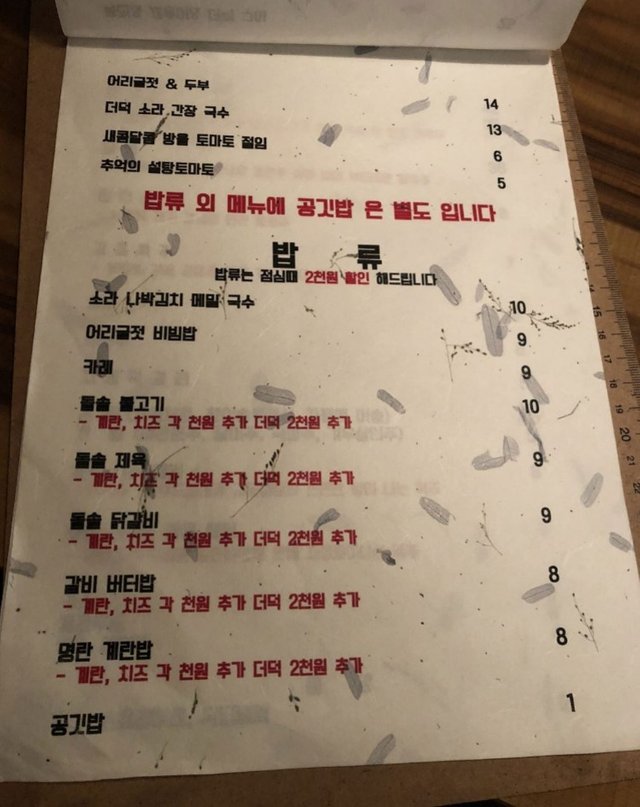 어리굴젓 & 두부 14
더덕 소라 간장 국수 13
새콤달콤 방울 토마토 절임 6
추억의 설탕토마토 5
밥류 외 메뉴에 공깃밥 은 별도 입니다
밥 류
밥류는 점심때 2천원 할인 해드립니다
소라 나박김치 메밀 국수 10
어리굴젓 비빔밥 9
카레 9
돌솥 불고기 10
- 계란, 치즈 각 천원 추가 더덕 2천원 추가
돌솥 제육 9
- 계란, 치즈 각 천원 추가 더덕 2천원 추가
돌솥 닭갈비 9
- 계란, 치즈 각 천원 추가 더덕 2천원 추가
갈비 버터밥 8
- 계란, 치즈 각 천원 추가 더덕 2천원 추가
명란 계란밥 8
- 계란, 치즈 각 천원 추가 더덕 2천원 추가
공깃밥 1
15
16
17
18
19
20
21
22